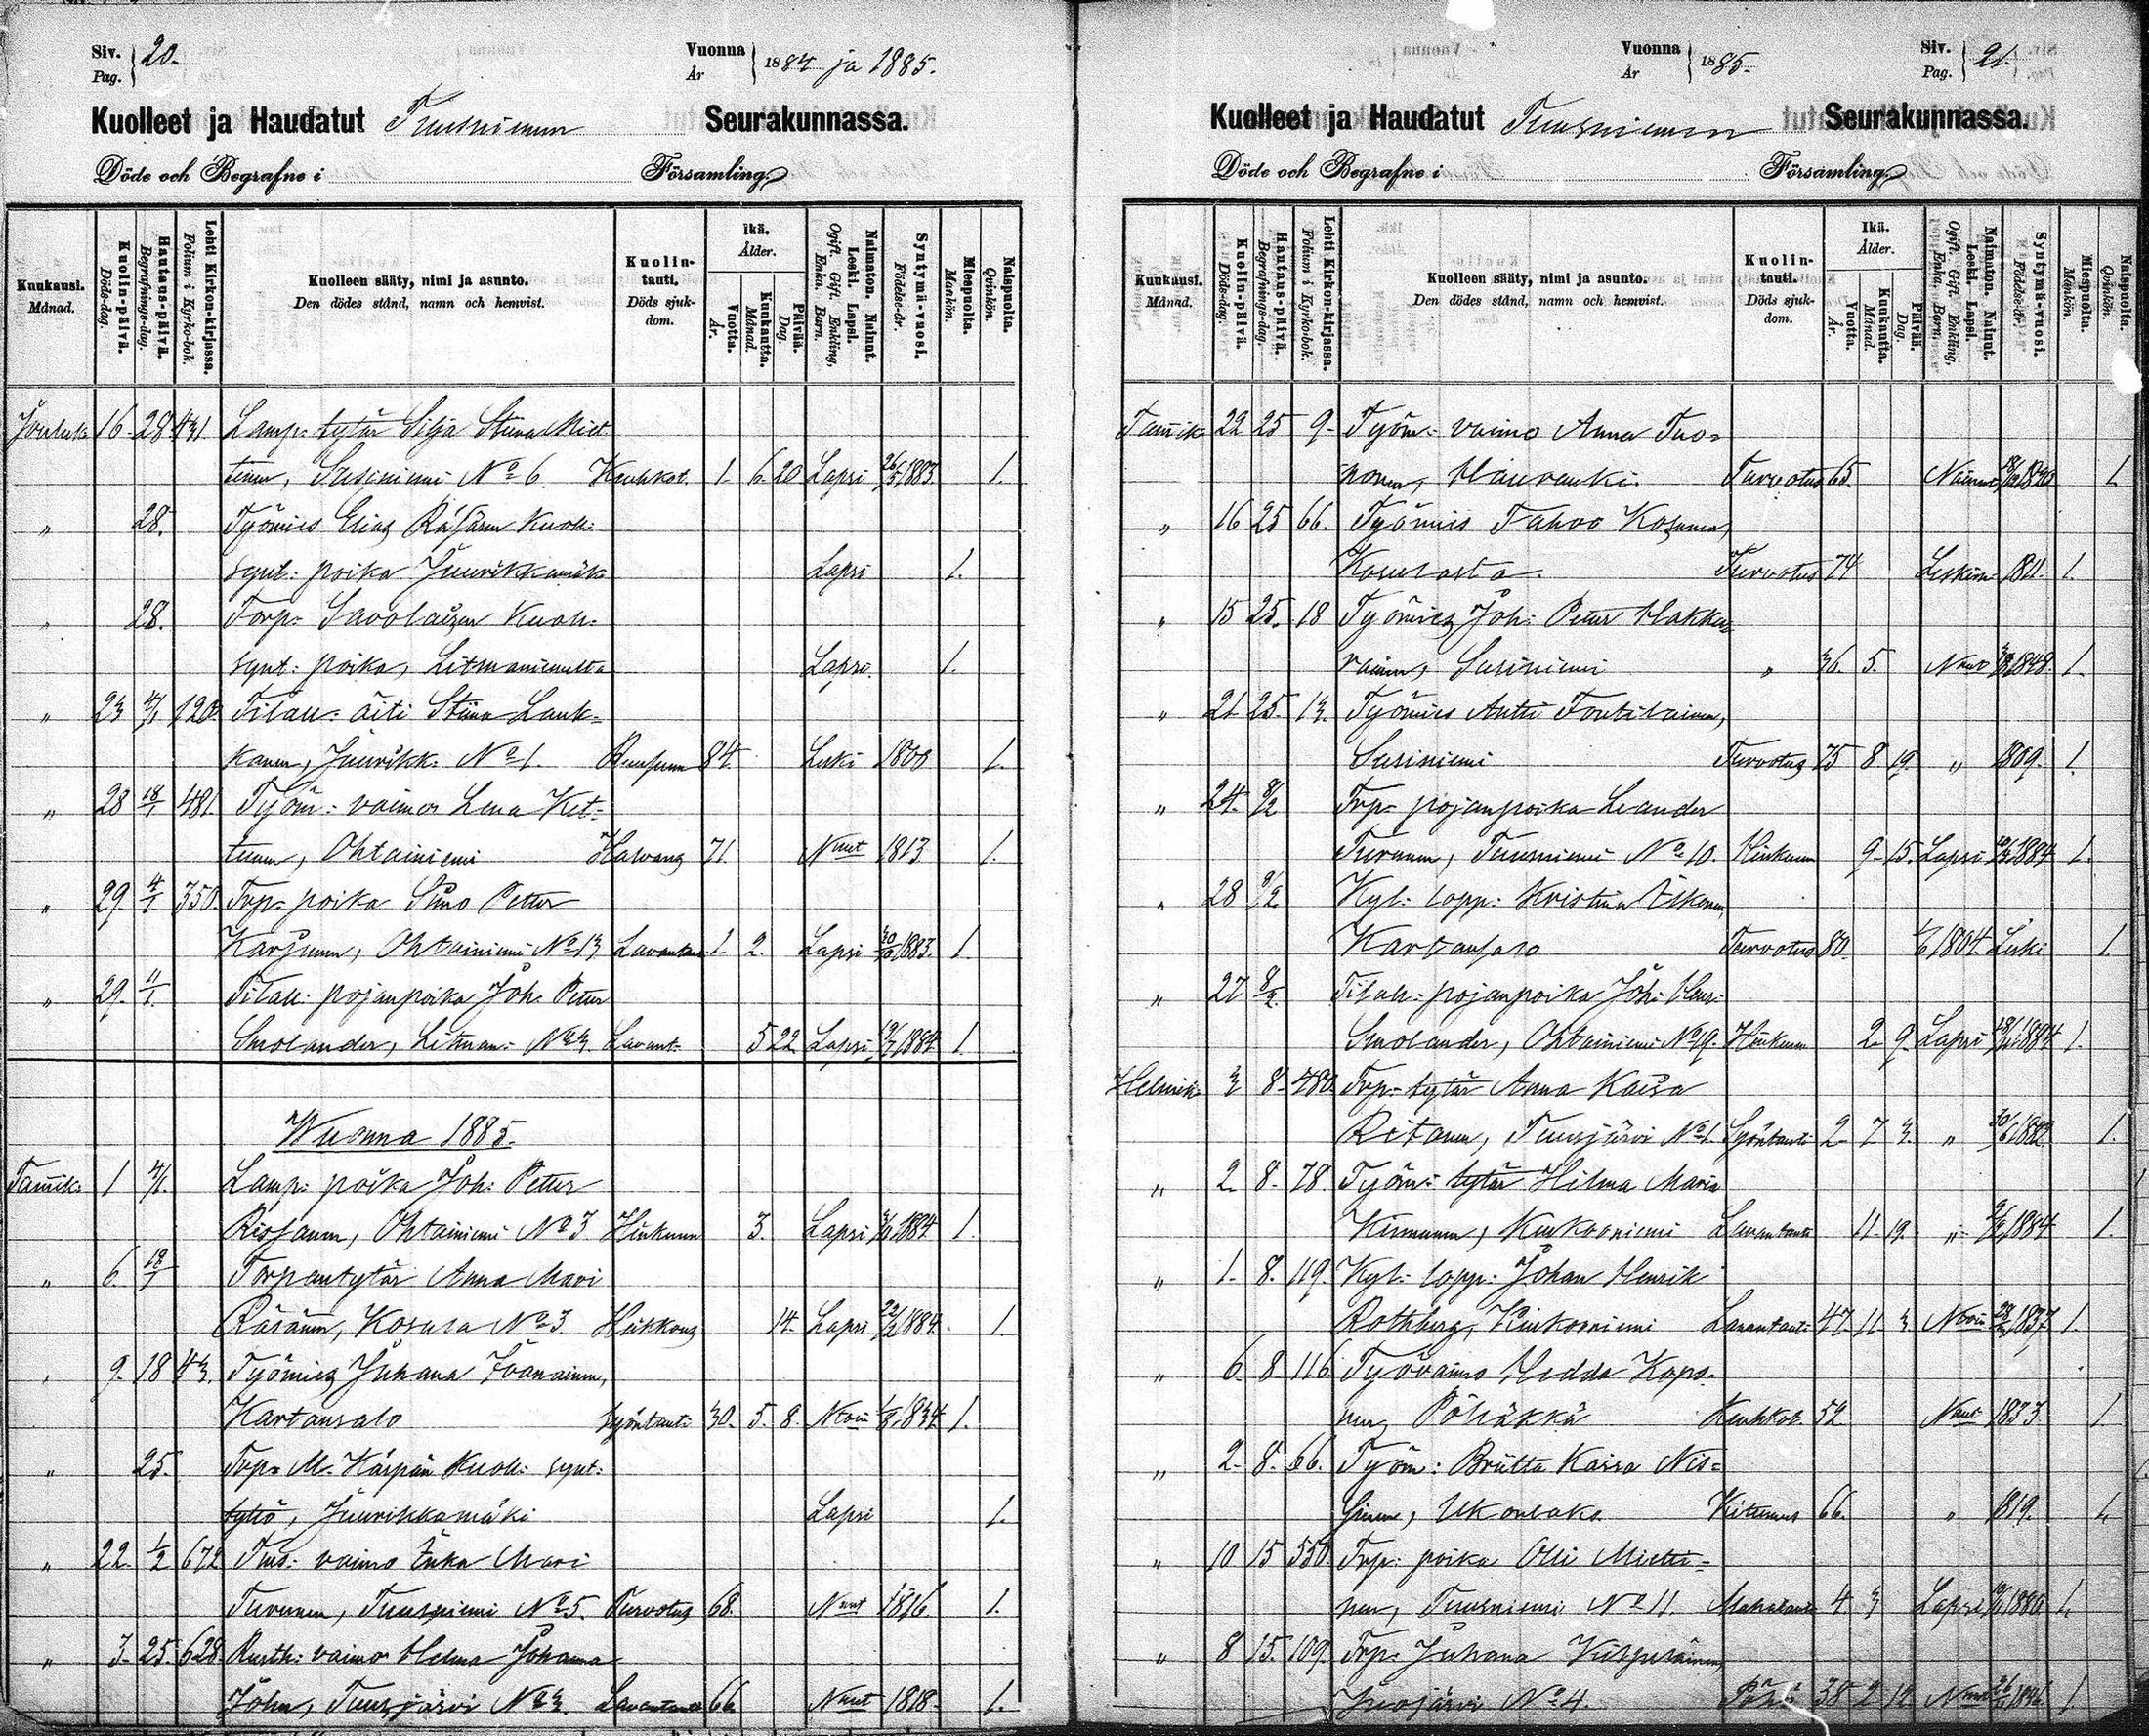 Siv. Pag. 20.
Vuonna År 1884 ja 1885.
Kuolleet ja Haudatut Tuusniemen Seurakunnassa.
Döde och Begrafne i Församling.
Kuukausi. Månad.
Kuolin-päivä. Döds-dag.
Hautaus-päivä. Begrafnings-dag.
Lehti Kirkon-kirjassa. Folium i Kyrko-bok.
Kuolleen sääty, nimi ja asunto. Den dödes stånd, namn och hemvist.
Kuolin-tauti. Döds sjuk-dom.
Ikä. Ålder.
Vuotta. År.
Kuukautta. Månad.
Päivää. Dag.
Naimaton. Nainut. Leski. Lapsi. Ogift. Gift. Enkling, Enka. Barn.
Syntymä-vuosi. Födelse-år.
Miespuolta. Mankön.
Naispuolta. Qvinkön.
Jouluk. 16. 28. 431 Lamp: tytär Silja Stiina Miet-
tinen, Susiniemi No 6. Keuhkot. 1. 6. 20 Lapsi 26/5 1883. 1.
" 28. Työmies Elias Räsäsen kuoll:
synt: poika Juurikkamäk Lapsi 1.
" 28. Torp: Savolaisen kuoll:
synt: poika, Litmaniemeltä Lapsi. 1.
" 23 4/1 120. Tilall: äiti Stiina Lauk-
kanen, Juurikk: No 1. 84. Leski 1800 1.
" 28 18/1 481. Työm: vaimo Lena Ket-
tunen, Ohtainiemi Halvaus 71. Nnut 1813 1.
" 29. 4/1 350. Trp: poika Simo Petter
Karjunen, Ohtainiemi No 13 1. 2. Lapsi 30/10 1883. 1.
" 29. 11/1. Tilall: pojanpoika Joh. Petter
Smolander, Litman: No 3. Lavant: 5 22 Lapsi 1884 1.
Wuonna 1885.
Tamik: 1 4/1. Lamp: poika Joh: Petter
Rissanen, Ohtainiemi No 3 Hinkunen 3. Lapsi 1884 1.
" 6. 18/1 Torpantytär Anna Mari
Räsänen, Kosula No 3. 14. Lapsi 22/12 1884. 1.
" 9. 18 43. Työmies Juhana Ivanainen,
Kartansalo Syöntauti 30. 5. 8. 1/8 1834 1.
" 25. Trp: M. Kärpän kuoll: synt:
tyttö, Juurikkamäki Lapsi 1.
" 22. 1/2 672 vaimo Mari
Turunen, Tuusniemi No 5. Turvotus 68. Nnut 1816 1.
" 3. 25. 628. Rusth: vaimo Helena Johanna
John, Tuusjärvi No 3. 66. Nnut 1818. 1.
Vuonna År 1885.
Siv. Pag. 21.
Kuolleet ja Haudatut Tuusniemen Seurakunnassa.
Döde och Begrafne i Församling.
Kuukausi. Månad.
Kuolin-päivä. Döds-dag.
Hautaus-päivä. Begrafnings-dag.
Lehti Kirkon-kirjassa. Folium i Kyrko-bok.
Kuolleen sääty, nimi ja asunto. Den dödes stånd, namn och hemvist.
Kuolin-tauti. Döds sjuk-dom.
Ikä. Ålder.
Vuotta. År.
Kuukautta. Månad.
Päivää. Dag.
Naimaton. Nainut. Leski. Lapsi. Ogift. Gift. Enkling, Enka. Barn.
Syntymä-vuosi. Födelse-år.
Miespuolta. Mankön.
Naispuolta. Qvinkön.
Tamik: 22 25 9. Työm: vaimo Anna Tuo-
nonen, Turvotus 65. 1.
" 16 25 66. Työmies Tahvo Kosunen,
Kosulasta. Turvotus 74 1811. 1.
" 15 25. 18 Työmies Joh: Petter Hakka-
rainen, Susiniemi " 36. 5. 1848. 1.
" 21 25. 13. Työmies Antti Tontilainen,
Susiniemi Turvotus 75 8 19. " 1809. 1.
" 24. 8/2 Trp: pojanpoika Leander
Turunen, Tuusniemi No 10. Hinkunen 9. 15. Lapsi 1884 1.
" 28 8/2 Kyl: lopp: Kristina
Kartansalo Turvotus 80. 1804. Leski 1.
" 27 8/2. Tilall: pojanpoika Joh: Henr:
Smolander, Ohtainiemi No 19. Hinkunen 2. 9. Lapsi 1884 1.
Helmik: 3 8. 480. Trp: tytär Anna Kaisa
Ritanen, Tuusjärvi No 1. Syöntauti 2. 7 3. " 1882 1.
" 2. 8. 78. Työm: tytär Hilma Maria
Kinnunen, Lavantauti 11. 19. " 1884 1.
" 1. 8. 119. Kyl: lopp: Johan Henrik
Rothberg, Lavantauti 47 11 3. 1837 1.
" 6. 8. 116. Työvaimo Hedda Kapo-
nen, Pöhäkkä Keuhkot. 52 Nnut 1833 1.
" 2. 8. 66. Työm: Briitta Kaisa Nis-
sinen, Ukonlaks. 66. " 1819. 1.
" 10 15 550. Trp: poika Olli Mietti-
nen, Tuusniemi No 11. 4 3 Lapsi 1880 1.
" 8 15. 109. Trp: Juhana
Juojärvi No 4. 38 2 12 1846 1